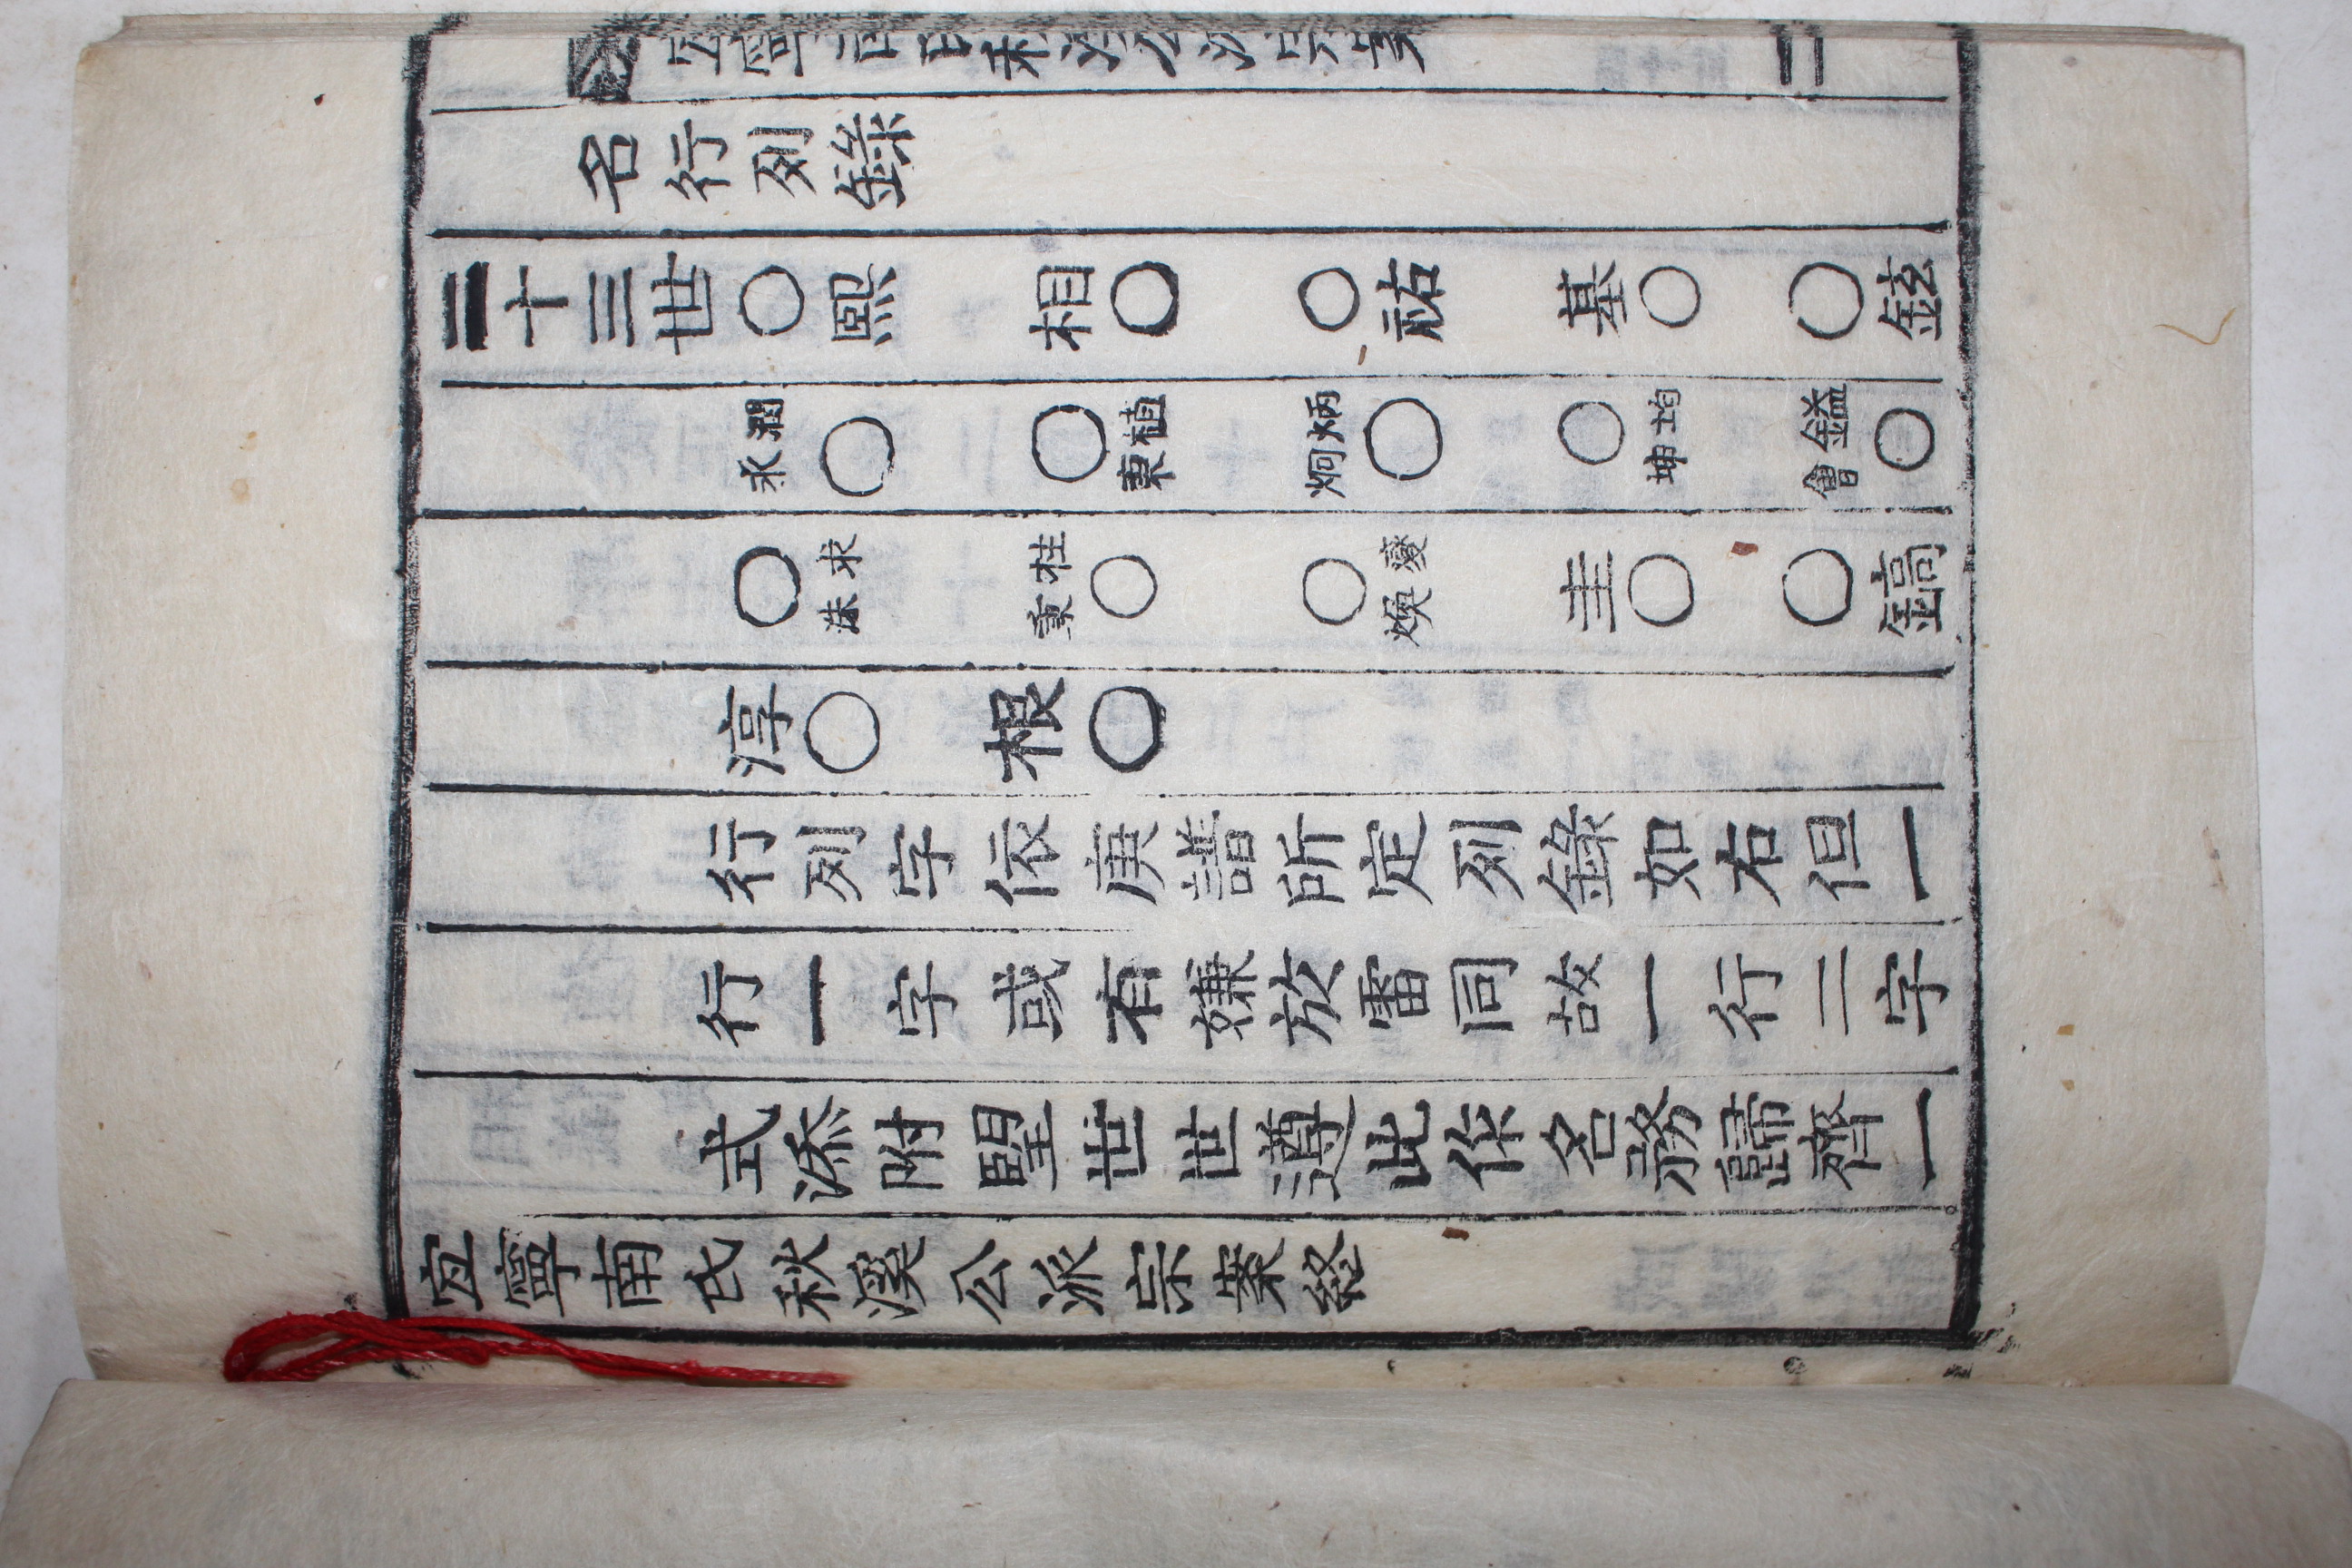 二
名行列錄
二十三世○熙 相○ ○祐 基○ ○鉉
潤永○ ○植秉 炳炯○ ○均坤 鎰會○
○求洙 桂東○ ○燮煥 圭○ ○鎬
淳○ 根○
行列字依庚譜所定列錄如右但一
行一字或有嫌於雷同故一行二字
式添附朢世世遵此作名務歸齊一
宜寧南氏秋溪公派宗案終